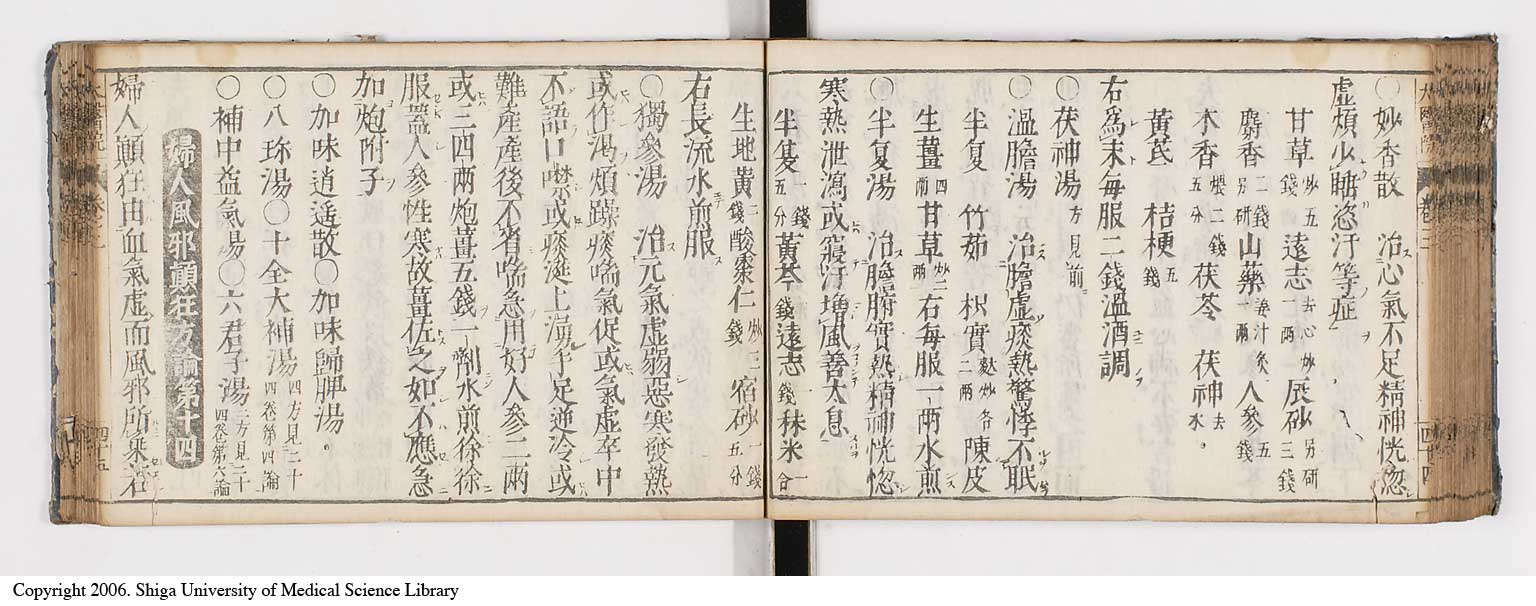 〇妙香散　治心氣不足精神恍惚
虛煩少睡恣汗等症
甘草炒五錢　遠志去心炒一兩　辰砂另研三錢
麝香二錢另研　山藥姜汁炙一兩　人參五錢
木香煨二錢五分　茯苓　茯神去木。
黃芪　桔梗五錢
右為末每服二錢溫酒調
〇茯神湯方見前
〇溫膽湯　治膽虛痰熱驚悸不眠
半夏　竹茹　枳實麩炒各二兩　陳皮
生薑四兩　甘草炒二兩　右每服一兩水煎
〇半夏湯　治膽腑實熱精神恍惚
寒熱泄瀉或寢汗增風善太息
半夏一錢五分　黃芩一錢　遠志一錢　秫米一合
生地黃二錢　酸棗仁炒三錢　宿砂一錢五分
右長流水煎服
〇獨參湯　治元氣虛弱惡寒發熱
或作渴煩躁痰喘氣促或氣虛卒中
不語口噤或痰涎上湧手足逆冷或
難產產後不省喘急用好人參二兩
或三四兩炮薑五錢一劑水煎徐徐
服蓋人參性寒故薑佐之如不應急
加炮附子
〇加味逍遥散〇加味歸脾湯。
〇八珎湯〇十全大補湯四方見三十四卷第四論
〇補中益氣湯〇六君子湯二方見三十四卷第六論
婦人風邪顚狂方論第十四
婦人顚狂由血氣虛而風邪所乘若
四十四
四十五